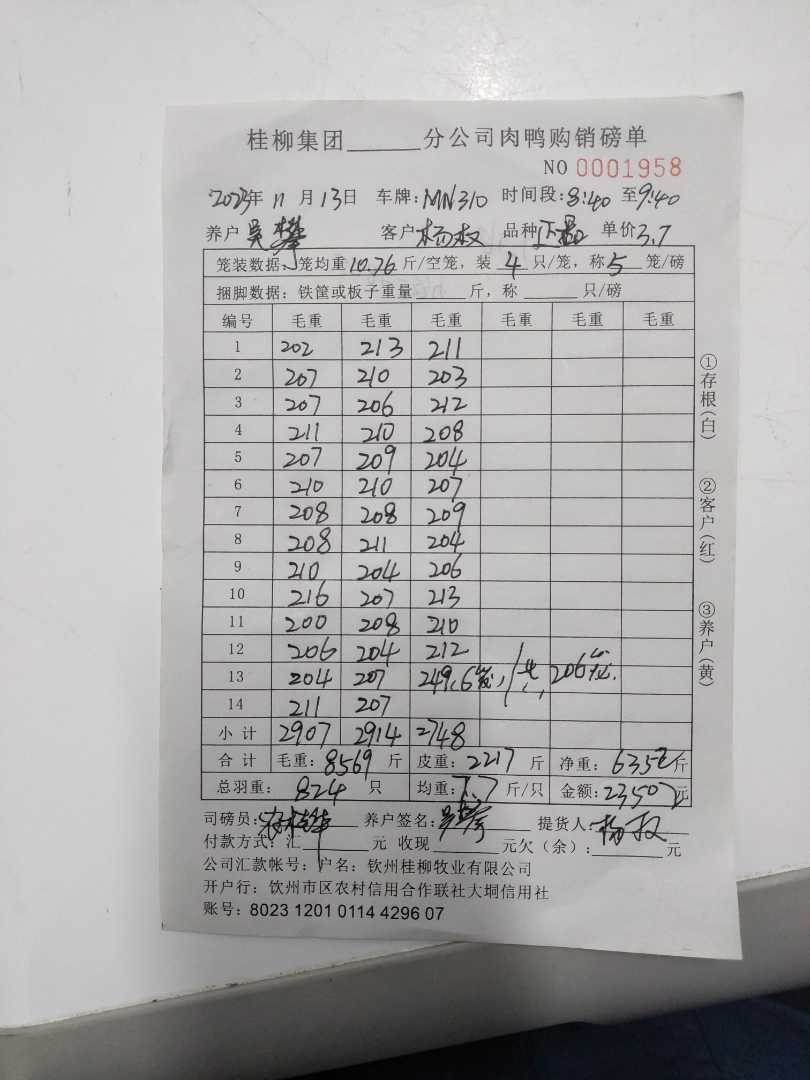 桂柳集团______分公司肉鸭购销磅单
NO 0001958
2023年 11 月 13日 车牌:MN310 时间段:8:40 至9:40
养户 吴攀 客户 杨权 品种 单价3.7
笼装数据：笼均重10.76 斤/空笼，装 4 只/笼，称 5 笼/磅
捆脚数据：铁筐或板子重量 斤，称 ______ 只/磅
编号 毛重 毛重 毛重 毛重 毛重 毛重
1 202 213 211
2 207 210 203
3 207 206 212
4 211 210 208
5 207 209 204
6 210 210 207
7 208 208 209
8 208 211 204
9 210 204 206
10 216 207 213
11 200 208 210
12 206 204 212
13 204 207 249.6 共 206笼.
14 211 207
小计 2907 2914 2748
合计 毛重：8569 斤 皮重：2217 斤 净重：6352 斤
总羽重：824 只 均重：7.7 斤/只 金额：23502 元
司磅员： 养户签名：吴攀 提货人：杨权
付款方式：汇______元 收现______元欠（余）：______元
公司汇款帐号：户名：钦州桂柳牧业有限公司
开户行：钦州市区农村信用合作联社大垌信用社
账号：8023 1201 0114 4296 07
①存根(白)
②客户(红)
③养户(黄)